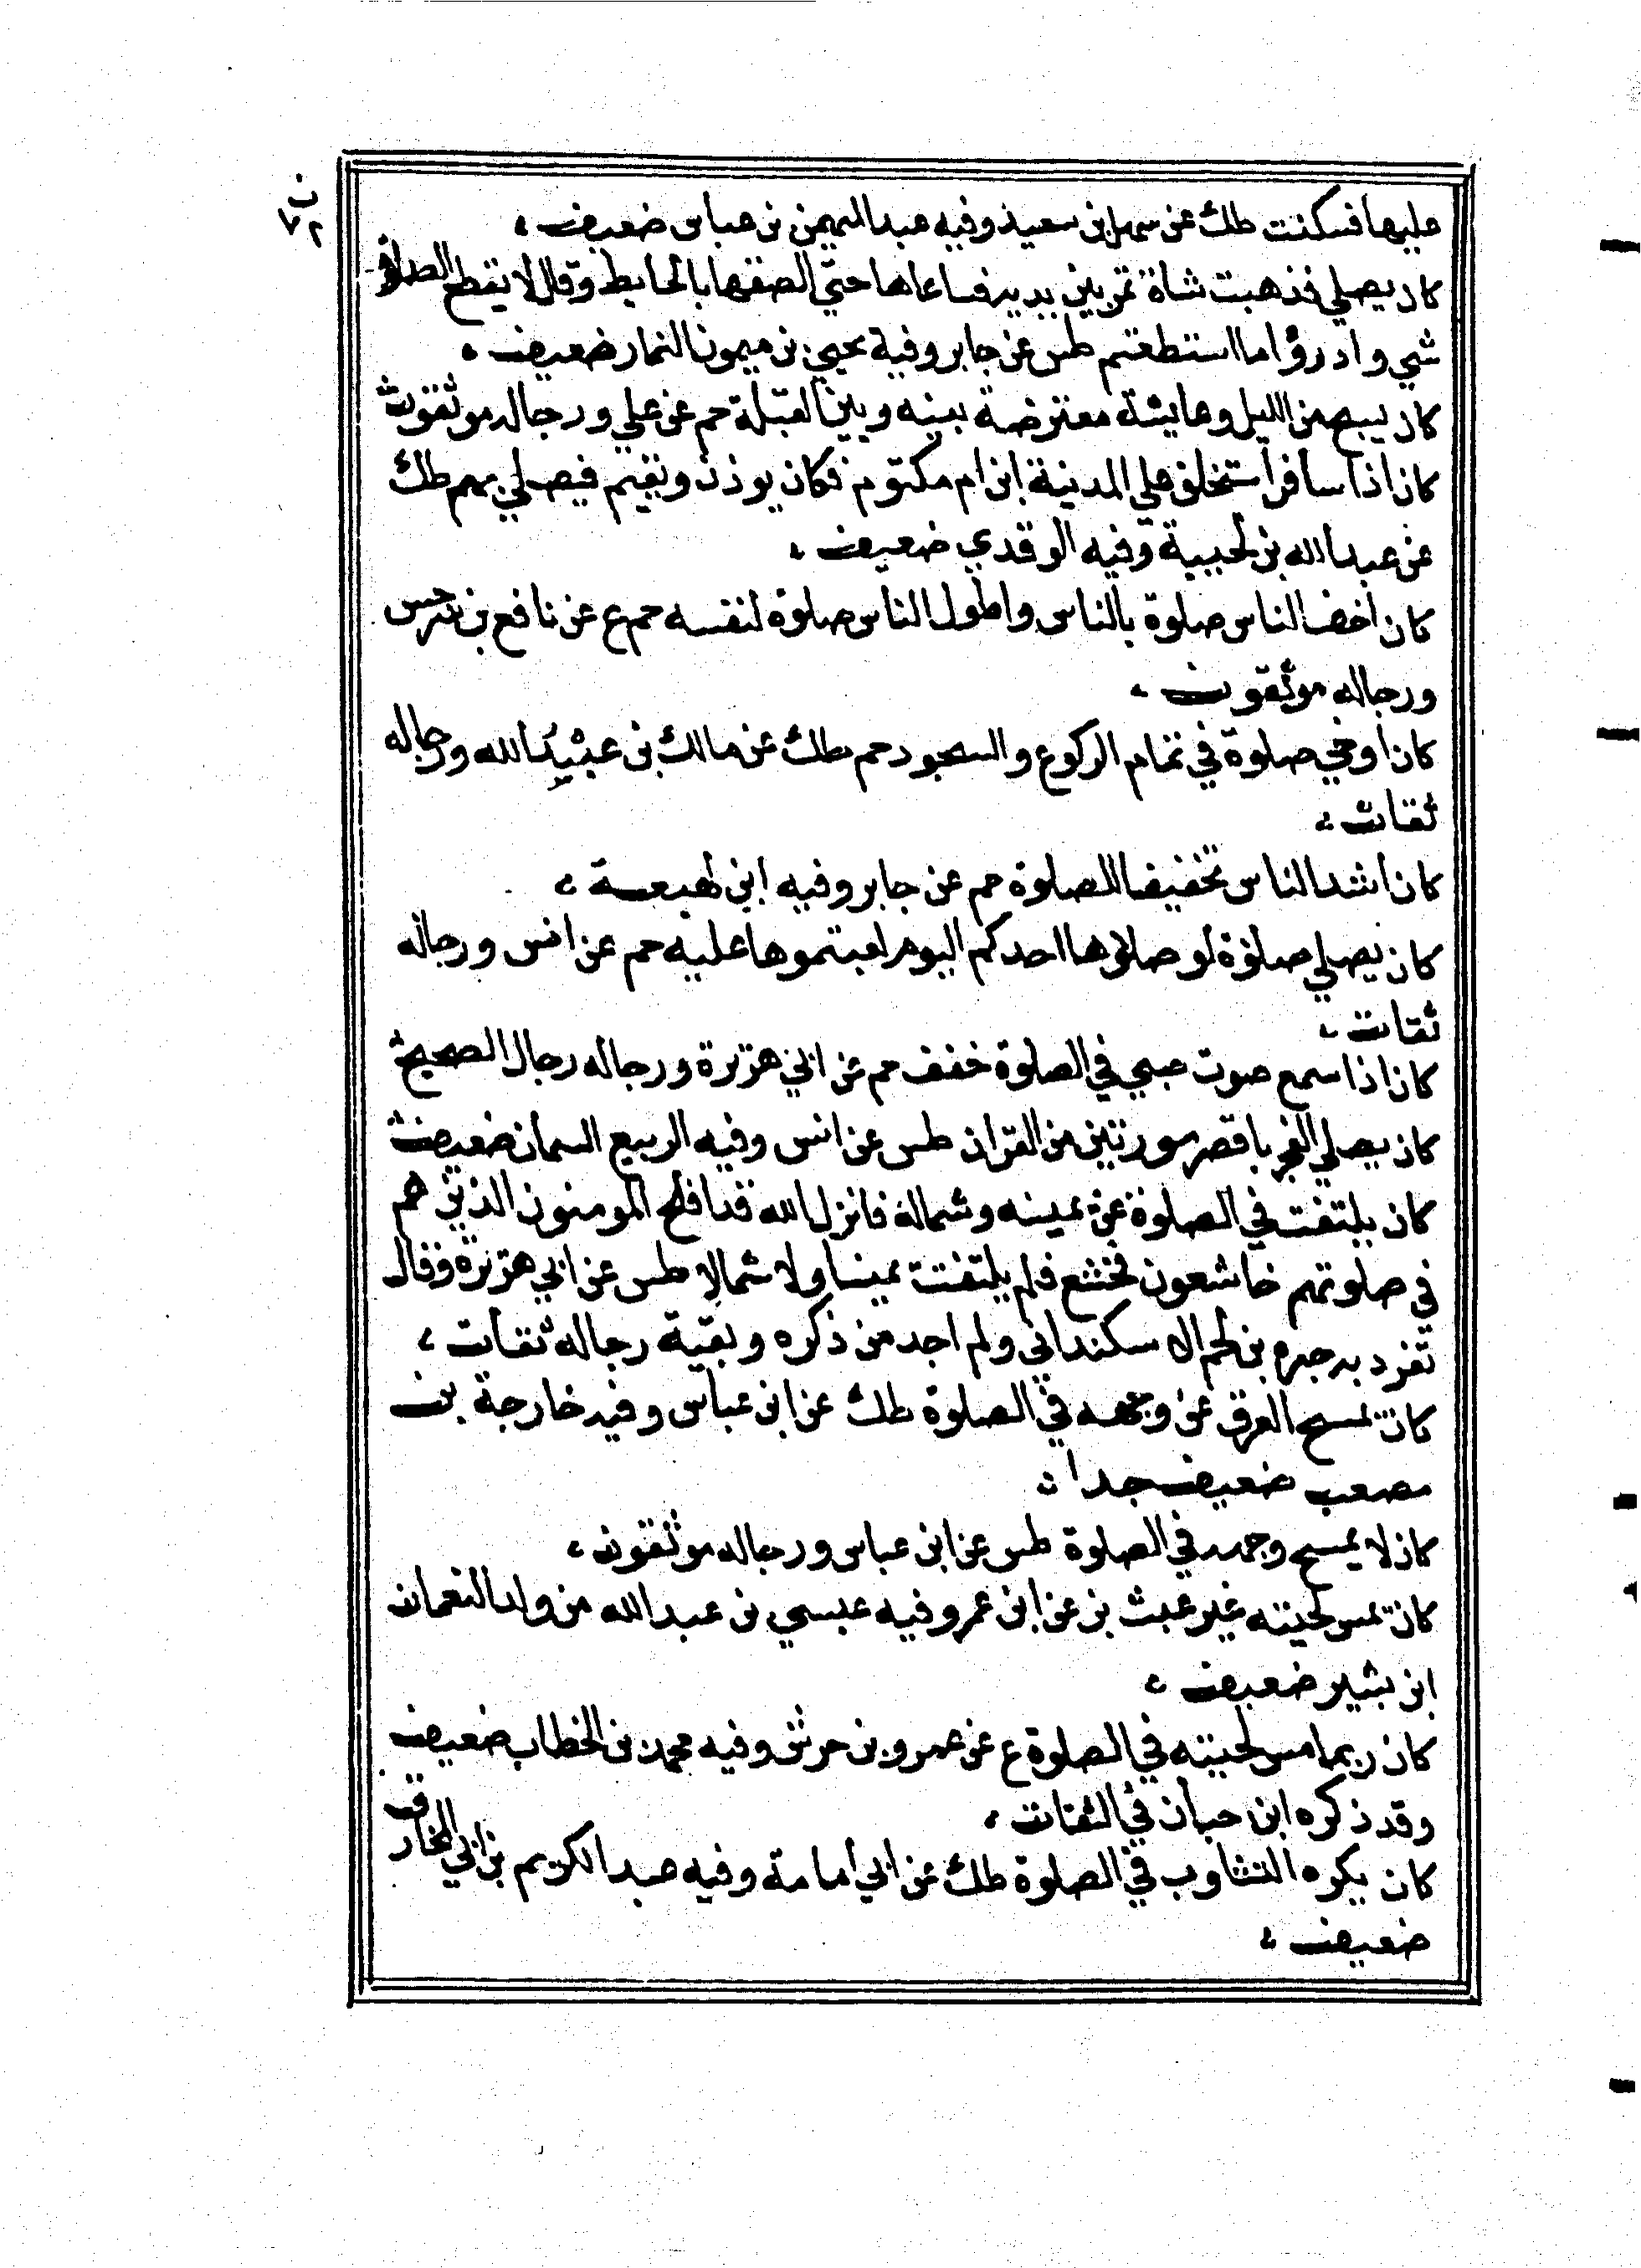 عليها فسكنت طك عن سهل ابن سعيد وفيه عبد المهيمن بن عباس ضعيف
كان يصلي فذهبت شاة تمر بين يديه فساعاها حتي الصقها بالحايط وقال لا يقطع الصلوة
شي وادرؤا ما استطعتم طس عن جابر وفية يحيي بن ميمون التمار ضعيف
كان يسبح من الليل وعايشة معترضة بينه وبين القبلة حم عن علي ورجاله موثقون
كان اذا سافر استخلف علي المدينة ابن ام مكتوم فكان يوذن ويقيم فيصلي بهم طك
عن عبد الله بن لحبيبة وفيه الوقدي ضعيف
كان اخف الناس صلوة بالناس واطول الناس صلوة لنفسه حم ع عن نافع بن سرجس
ورجاله موثقون
كان اوجي صلوة في تمام الركوع والسجود حم طك عن مالك بن عبيد الله ورجاله
ثقات
كان اشد الناس تخفيفا للصلوة حم عن جابر وفيه ابن لهيعة
كان يصلي صلوة لو صلاوها احدكم اليوم لعبتموها عليه حم عن انس ورجاله
ثقات
كان اذا سمع صوت صبي في الصلوة خفف حم عن ابي هريرة ورجاله رجال الصحيح
كان يصلي الفجر باقصر سورتين من القران طس عن انس وفيه الربيع السمان ضعيف
كان يلتفت في الصلوة عن يمينه وشماله فانزل الله قد افلح المومنون الذين هم
في صلوتهم خاشعون فخشع فلم يلتفت يمينا ولا شمالا طس عن ابي هريرة وقال
تفرد به حبره بن لحم الاسكنداني ولم اجد من ذكره وبقية رجاله ثقات
كان يمسح العرق عن وجهه في الصلوة طك عن ابن عباس وفيه خارجة بن
مصعب ضعيف جدا
كان لا يمسح وجهه في الصلوة طس عن ابن عباس ورجاله موثقون
كان يمس لحيته غير عبث بز عن ابن عمر وفيه عيسي بن عبد الله من ولد النعمان
ابن بشير ضعيف
كان ربما مس لحيته في الصلوة ع عن عمرو بن حرث وفيه محمد بن الخطاب ضعيف
وقد ذكره ابن حبان في الثقات
كان يكره التثاوب في الصلوة طك عن ابي امامة وفيه عبد الكريم بن ابي المخارق
ضعيف